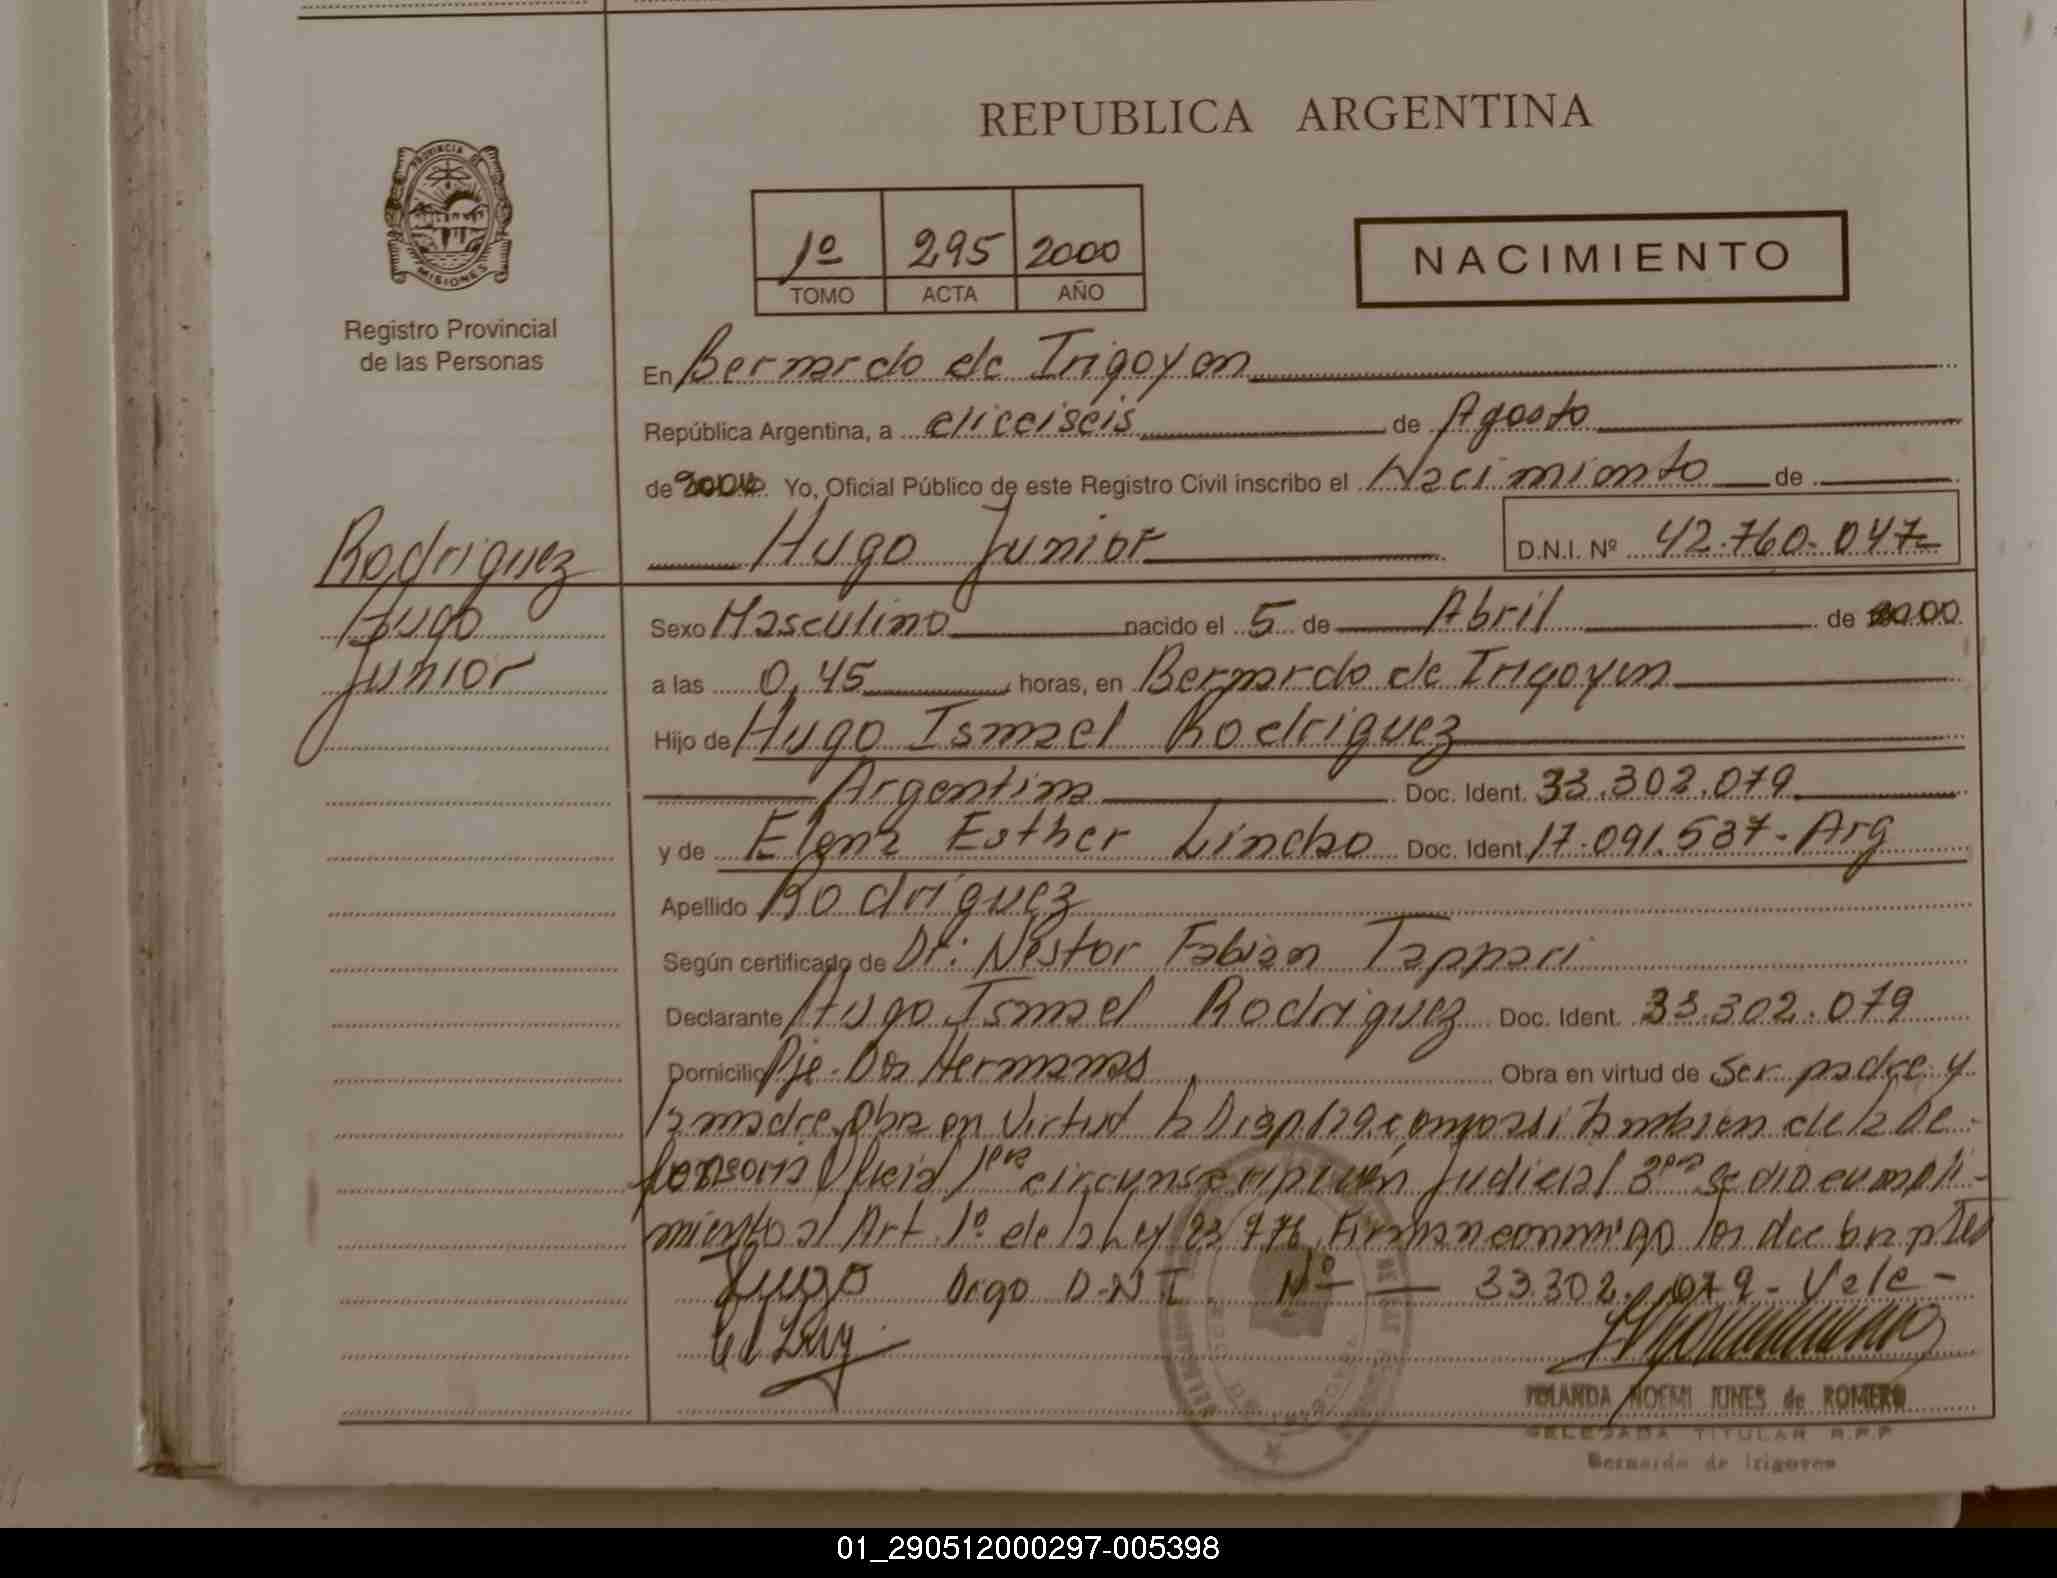 REPUBLICA ARGENTINA
PROVINCIA DE
MISIONES
Registro Provincial
de las Personas
1º 295 2000
TOMO ACTA AÑO
NACIMIENTO
En Bernardo de Irigoyen
República Argentina, a dieciseis de Agosto
de 2000 Yo, Oficial Público de este Registro Civil inscribo el Nacimiento de
Hugo Junior D.N.I. Nº 42.760.047
Rodriguez
Hugo
Junior
Sexo Masculino nacido el 5 de Abril de 2000
a las 0,45 horas, en Bernardo de Irigoyen
Hijo de Hugo Ismael Rodriguez
Argentina Doc. Ident. 33.302.079
y de Elena Esther Doc. Ident. 17.091.537- Arg
Apellido Rodríguez
Según certificado de Dr: Nestor Fabian Tappari
Declarante Hugo Ismael Rodriguez Doc. Ident. 33.302.079
Domicilio Pje. Dos Hermanas Obra en virtud de Ser padre y
la madre Obra en Virtud asi tambien de la De-
fensoria Oficial 1era circunscripción Judicial 3era Se dio cumpli-
miento al Art. 1º de la Ley 23.776. Firman conmigo los
Digo D-N-I. Nº 33.302.079- Vale-
YOLANDA NOEMI JUNES de ROMERO
DELEGADA TITULAR R.P.P
Bernardo de Irigoyen
01_290512000297-005398